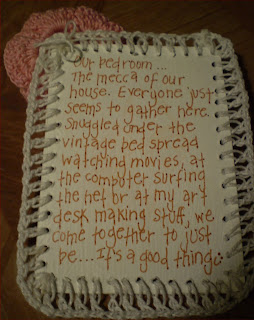 Our bedroom...
The mecca of our
house. Everyone just
seems to gather here.
Snuggled under the
vintage bed spread
watching movies, at
the computer surfing
the net or at my art
desk making stuff, we
come together to just
be... It's a good thing.